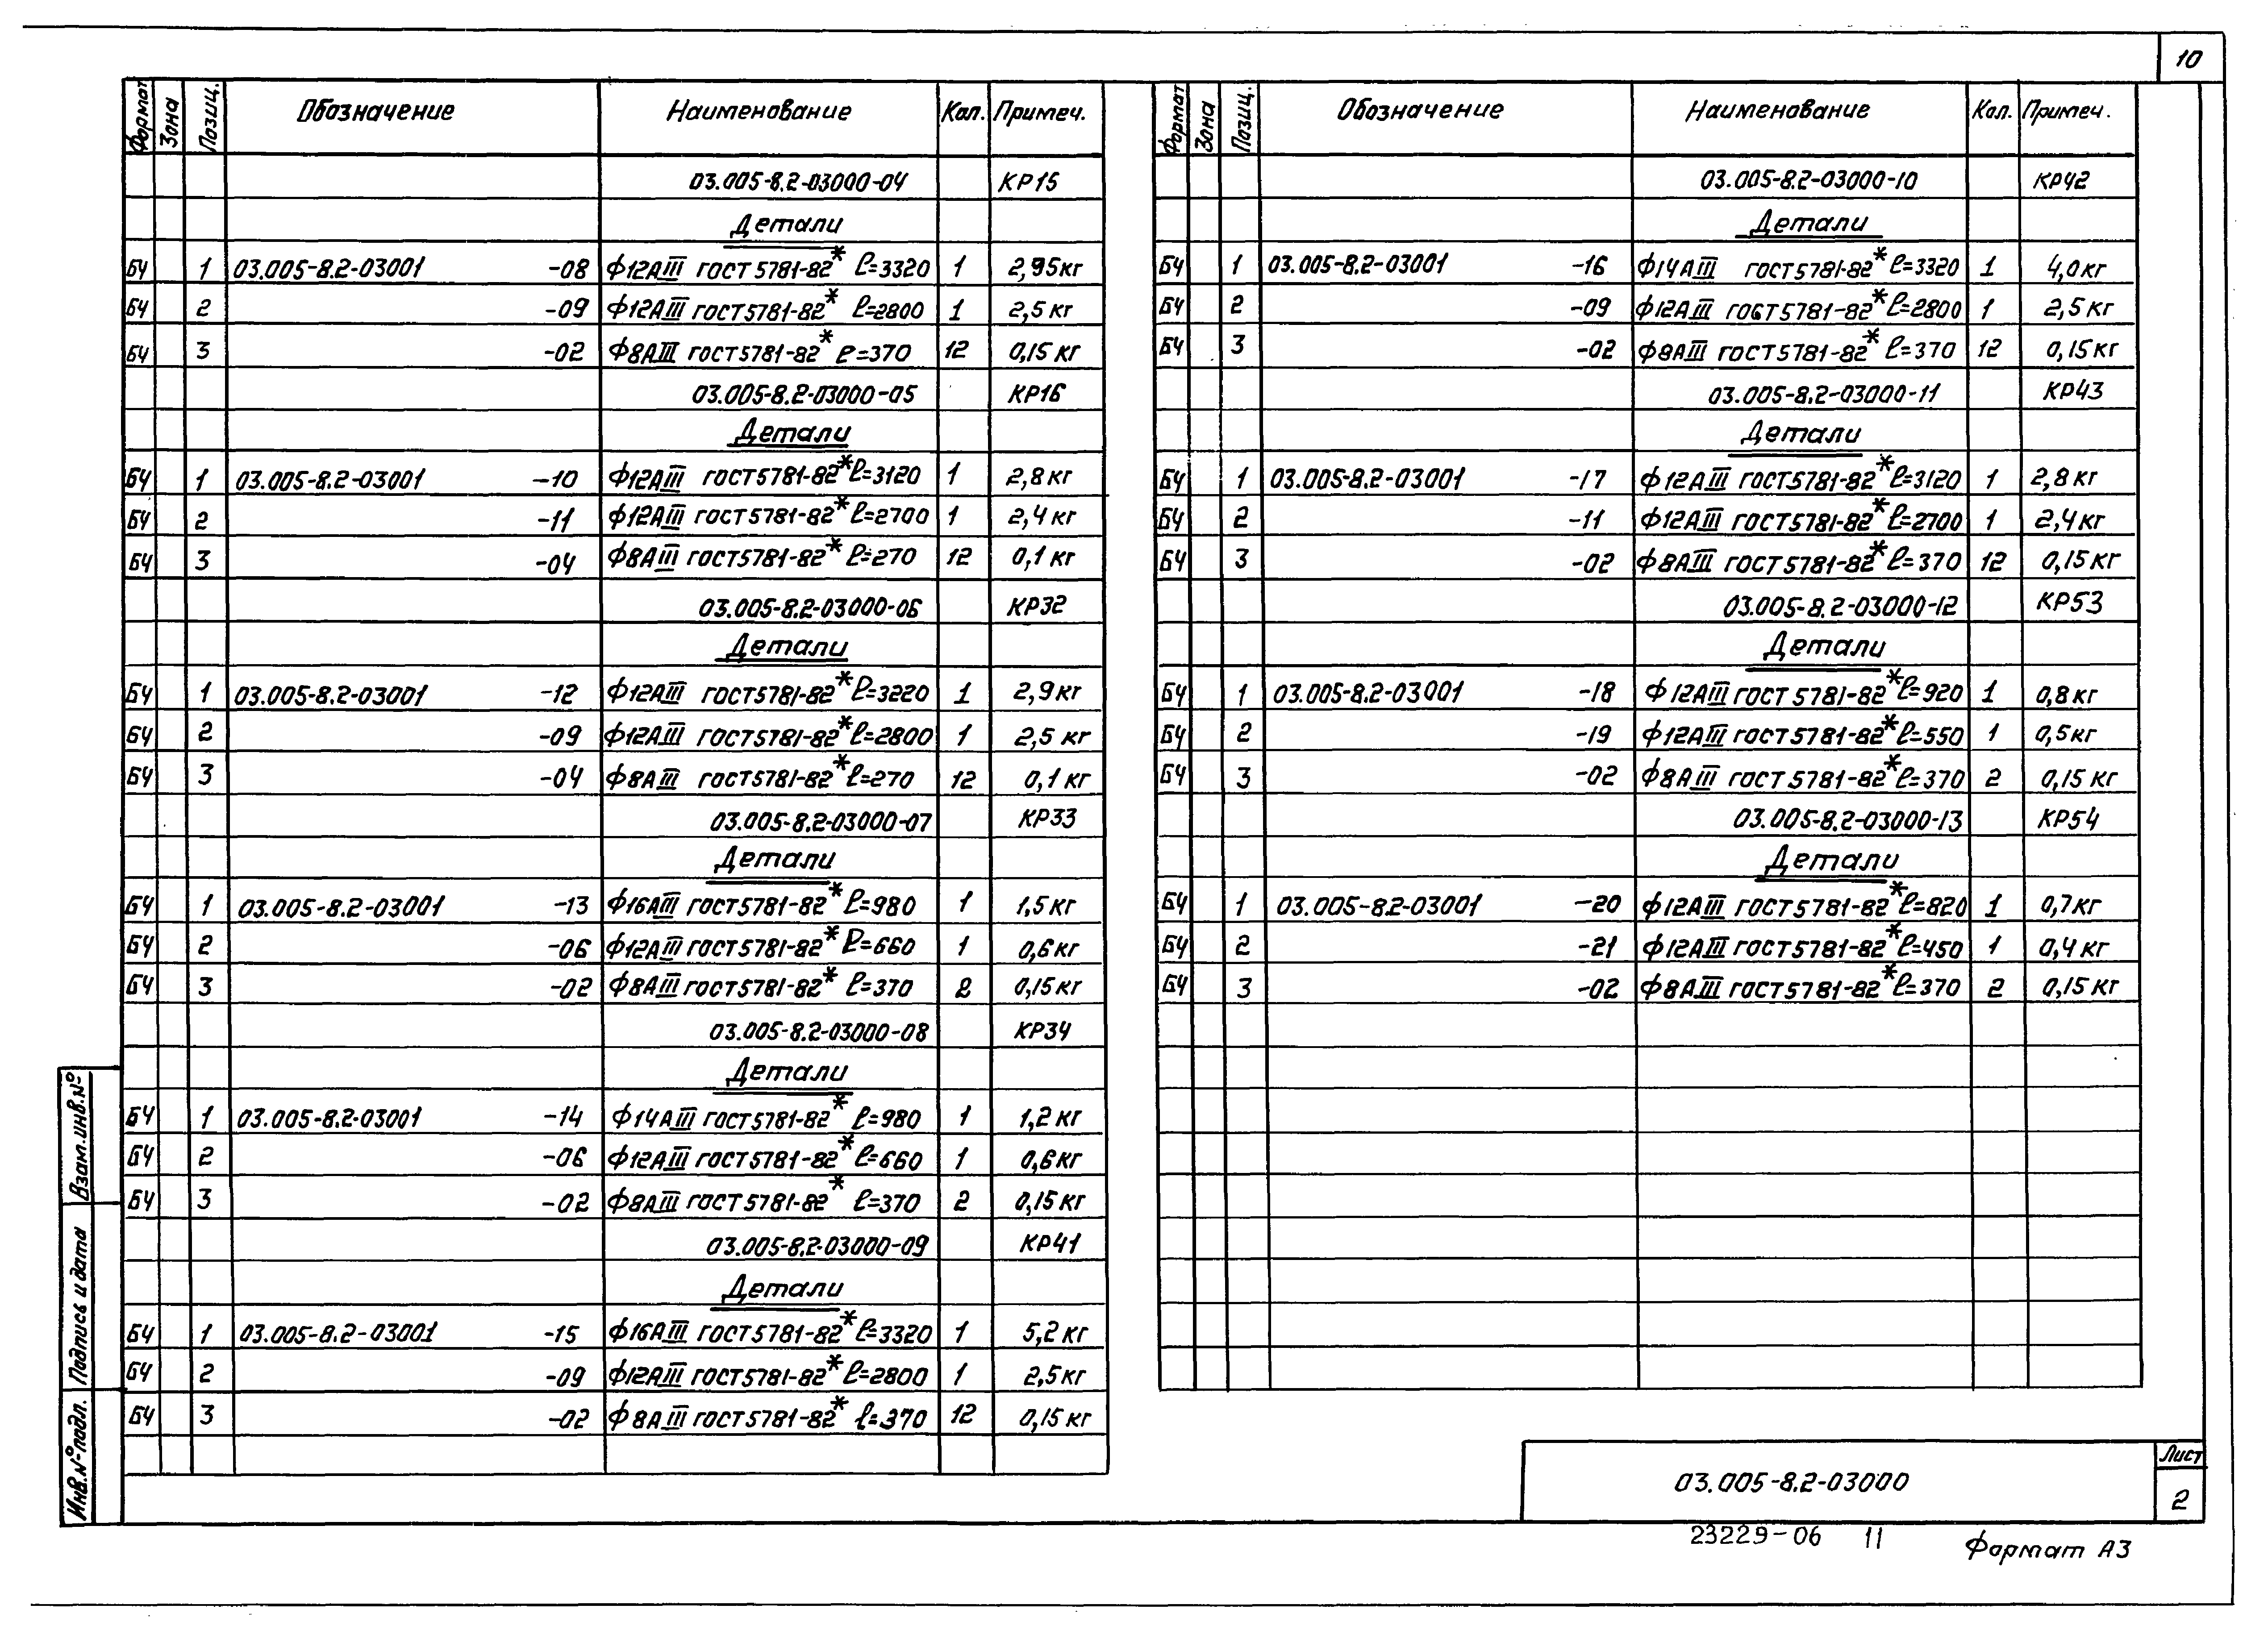 10
Формат Зона Позиц. Обозначение Наименование Кол. Примеч.
03.005-8.2-03000-04 КР15
Детали
БЧ 1 03.005-8.2-03001 -08 Ф12АIII ГОСТ 5781-82* ℓ=3320 1 2,95кг
БЧ 2 -09 Ф12АIII ГОСТ 5781-82* ℓ=2800 1 2,5 кг
БЧ 3 -02 Ф8АIII ГОСТ 5781-82* ℓ=370 12 0,15 кг
03.005-8.2-03000-05 КР16
Детали
БЧ 1 03.005-8.2-03001 -10 Ф12АIII ГОСТ 5781-82* ℓ=3120 1 2,8 кг
БЧ 2 -11 Ф12АIII ГОСТ 5781-82* ℓ=2700 1 2,4 кг
БЧ 3 -04 Ф8АIII ГОСТ 5781-82* ℓ=270 12 0,1 кг
03.005-8.2-03000-06 КР32
Детали
БЧ 1 03.005-8.2-03001 -12 Ф12АIII ГОСТ 5781-82* ℓ=3220 1 2,9 кг
БЧ 2 -09 Ф12АIII ГОСТ 5781-82* ℓ=2800 1 2,5 кг
БЧ 3 -04 Ф8АIII ГОСТ 5781-82* ℓ=270 12 0,1 кг
03.005-8.2-03000-07 КР33
Детали
БЧ 1 03.005-8.2-03001 -13 Ф16АIII ГОСТ 5781-82* ℓ=980 1 1,5 кг
БЧ 2 -06 Ф12АIII ГОСТ 5781-82* ℓ=660 1 0,6 кг
БЧ 3 -02 Ф8АIII ГОСТ 5781-82* ℓ=370 2 0,15 кг
03.005-8.2-03000-08 КР34
Детали
БЧ 1 03.005-8.2-03001 -14 Ф14АIII ГОСТ 5781-82* ℓ=980 1 1,2 кг
БЧ 2 -06 Ф12АIII ГОСТ 5781-82* ℓ=660 1 0,6 кг
БЧ 3 -02 Ф8АIII ГОСТ 5781-82* ℓ=370 2 0,15 кг
03.005-8.2-03000-09 КР41
Детали
БЧ 1 03.005-8.2-03001 -15 Ф16АIII ГОСТ 5781-82* ℓ=3320 1 5,2 кг
БЧ 2 -09 Ф12АIII ГОСТ 5781-82* ℓ=2800 1 2,5 кг
БЧ 3 -02 Ф8АIII ГОСТ 5781-82* ℓ=370 12 0,15 кг
Формат Зона Позиц. Обозначение Наименование Кол. Примеч.
03.005-8.2-03000-10 КР42
Детали
БЧ 1 03.005-8.2-03001 -16 Ф14АIII ГОСТ 5781-82* ℓ=3320 1 4,0 кг
БЧ 2 -09 Ф12АIII ГОСТ 5781-82* ℓ=2800 1 2,5 кг
БЧ 3 -02 Ф8АIII ГОСТ 5781-82* ℓ=370 12 0,15 кг
03.005-8.2-03000-11 КР43
Детали
БЧ 1 03.005-8.2-03001 -17 Ф12АIII ГОСТ 5781-82* ℓ=3120 1 2,8 кг
БЧ 2 -11 Ф12АIII ГОСТ 5781-82* ℓ=2700 1 2,4 кг
БЧ 3 -02 Ф8АIII ГОСТ 5781-82* ℓ=370 12 0,15 кг
03.005-8.2-03000-12 КР53
Детали
БЧ 1 03.005-8.2-03001 -18 Ф12АIII ГОСТ 5781-82* ℓ=920 1 0,8 кг
БЧ 2 -19 Ф12АIII ГОСТ 5781-82* ℓ=550 1 0,5 кг
БЧ 3 -02 Ф8АIII ГОСТ 5781-82* ℓ=370 2 0,15 кг
03.005-8.2-03000-13 КР54
Детали
БЧ 1 03.005-8.2-03001 -20 Ф12АIII ГОСТ 5781-82* ℓ=820 1 0,7 кг
БЧ 2 -21 Ф12АIII ГОСТ 5781-82* ℓ=450 1 0,4 кг
БЧ 3 -02 Ф8АIII ГОСТ 5781-82* ℓ=370 2 0,15 кг
Взам.инв.№
Подпись и дата
Инв.№ подл.
03.005-8.2-03000
Лист
2
23229-06 11
Формат А3